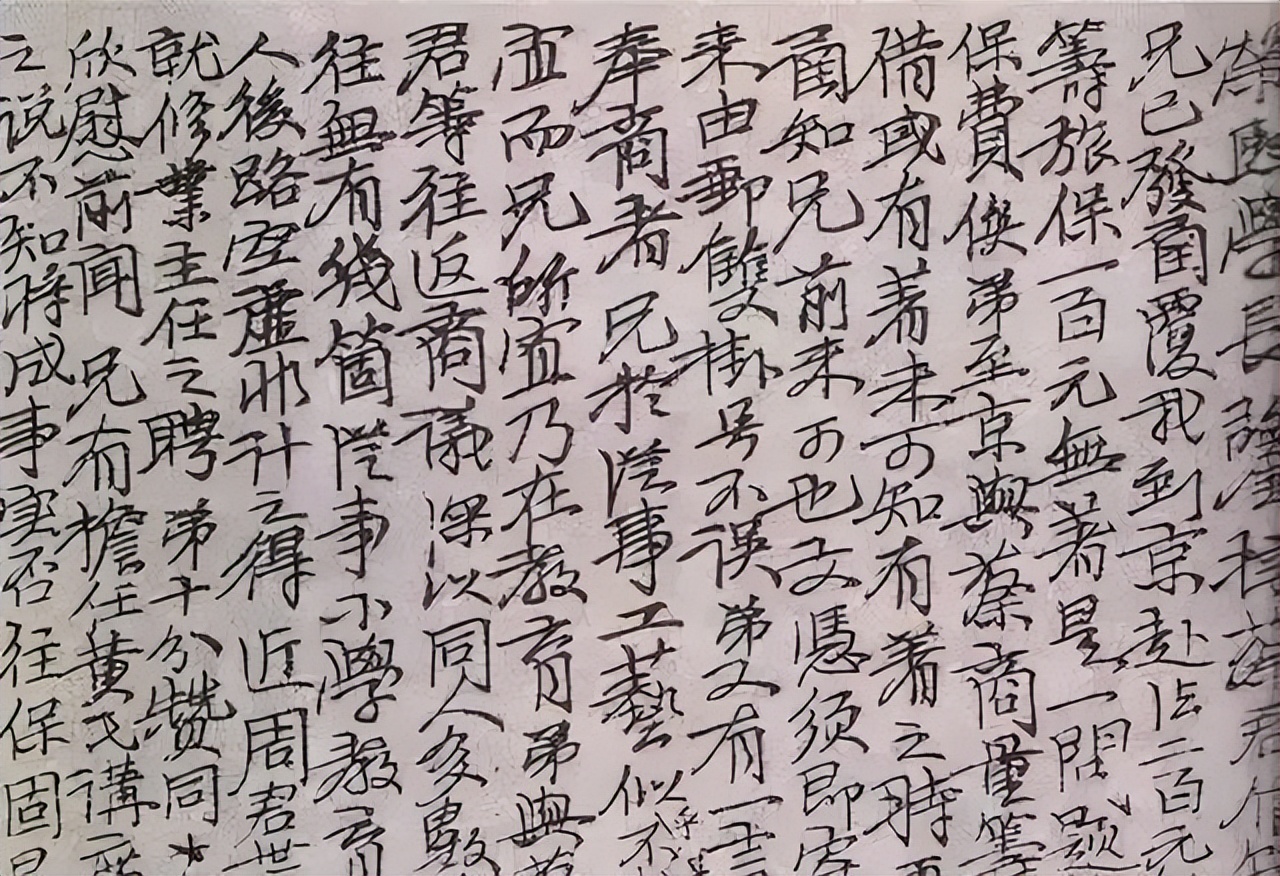 榮熙學長
兄已發函覆我到京赴法二百元
籌旅保一百元無著是一問題
保費俟弟至京與蔡商量籌
借或有着未可知有着之時
函知兄前来可也文憑須即寄
来由郵雙掛号不误弟又有一言
奉商者兄於從事工藝似乎不
宜而兄所宜乃在教育弟與蔡
君等往返商議深以同人多數
往無有幾箇從事小學教育
人後路空虛非计之得近周君世
就修業主任之聘弟十分赞同
欣慰前闻兄有擔任黄氏講席
之说不知將成事实否往保固是